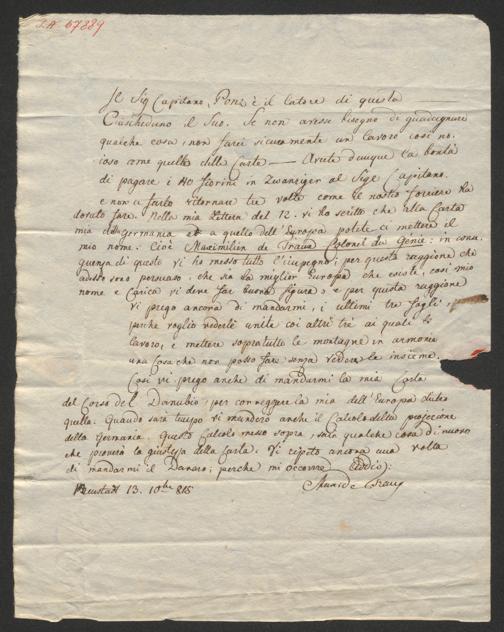 IA 67889
Il Sig Capitano, Ponz è il latore di questa
Ciascheduno il Suo. Se non avessi bisogno di guadagnare
qualche cosa, non farei sicuramente un lavoro così no-
ioso come quello delle Carte — Avete dunque la bontà
di pagare i 40 fiorini in Zwanziger al Sige Capitano.
e non a farlo ritornare tre volte come il nostro foriere ha
dovuto fare. Nella mia lettera del 12. vi ho scritto che alla Carta
mia di Germania et a quella dell'Europa potete a mettere il
mio nome. Cioè Maximilien de Traux Colonel du Génie: in conse-
quenza di queste vi ho messo tutto l'impegno; per questa raggione che
adesso sono persuaso, che sia la miglior Europa che esiste, così mio
nome e Carica vi deve far buona figura: e per questa raggione
vi prego ancora di mandarmi, i ultimi tre fogli,
perche voglio vederle unite coi altri tre ai quali
lavoro, e mettere sopratutto le montagne in armonie
una Cosa che non posso fare senza vederle insieme.
Così vi prego anche di mandarmi la mia Carta
del Corso del Danubio, per correggere la mia dell'Europa dietro
quella. Quando sarà tempo vi manderò anche il Calcolo della projezione
della Germania. Questo Calcolo messo sopra, sarà qualche cosa di nuovo
che proverà la giustezza della Carta. Vi ripeto ancora una volta
di mandarmi il Danaro; perche mi occorre Addio:
Neustadt 13. 10bre 815 de Traux